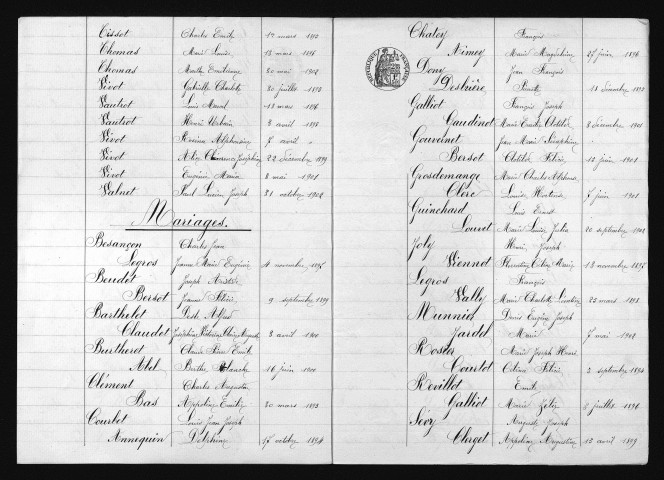 Cissot Charles Emile 1er mars 1893
Thomas Marie Louise 13 mars 1896
Thomas 30 mai 1902
Vivot Gabrielle Charlotte 30 juillet 1893
Vautiot Louis Marcel 13 mars 1896
Vautiot Henri Urbain 3 avril 1898
Vivot Alphonsine 7 avril "
Vivot 22 décembre 1899
Vivot Eugénie Maria 8 mai 1901
Valnet Paul Lucien Joseph 31 octobre 1902
Mariages.
Besançon Charles Jean
Legros Jeanne Marie Eugénie 4 novembre 1895
Beudet Joseph Aristide
Bersot Jeanne 9 septembre 1899
Barthelet Alfred
Claudet 3 avril 1900
Bertherot Claude Pierre Emile
Abel Berthe Blanche 16 juin 1900
Clément Charles Auguste
Bas Appoline Emilie 30 mars 1893
Courtet Louis Jean Joseph
Annequin Delphine 17 octobre 1894
Chatey François
Nimey Marie Magdeleine 27 juin 1896
Dony Jean François
Deslière 11 décembre 1893
Galliot François Joseph
Gaudinot Marie Emélie Clotilde 8 décembre 1901
Gouvenet Jean Marie Séraphin
Bersot Clotilde 12 juin 1901
Grosdemange Marie Charles Alphonse
Clerc Louise Hortense 7 juin 1901
Guinchard Louis Ernest
Louvet Marie Louise Julia 20 septembre 1902
Joly Henri Joseph
Viennot 13 novembre 1895
Legros François
Vally Marie Charlotte 23 mars 1898
Munnier Denis Eugène Joseph
Jardel Marie 7 mai 1902
Rosier Marie Joseph Henri
Courtot 3 septembre 1894
Révillot Emile
Galliot Marie Zélie 8 juillet 1896
Sévy Auguste Joseph
Clerget Appoline Augustine 13 avril 1899